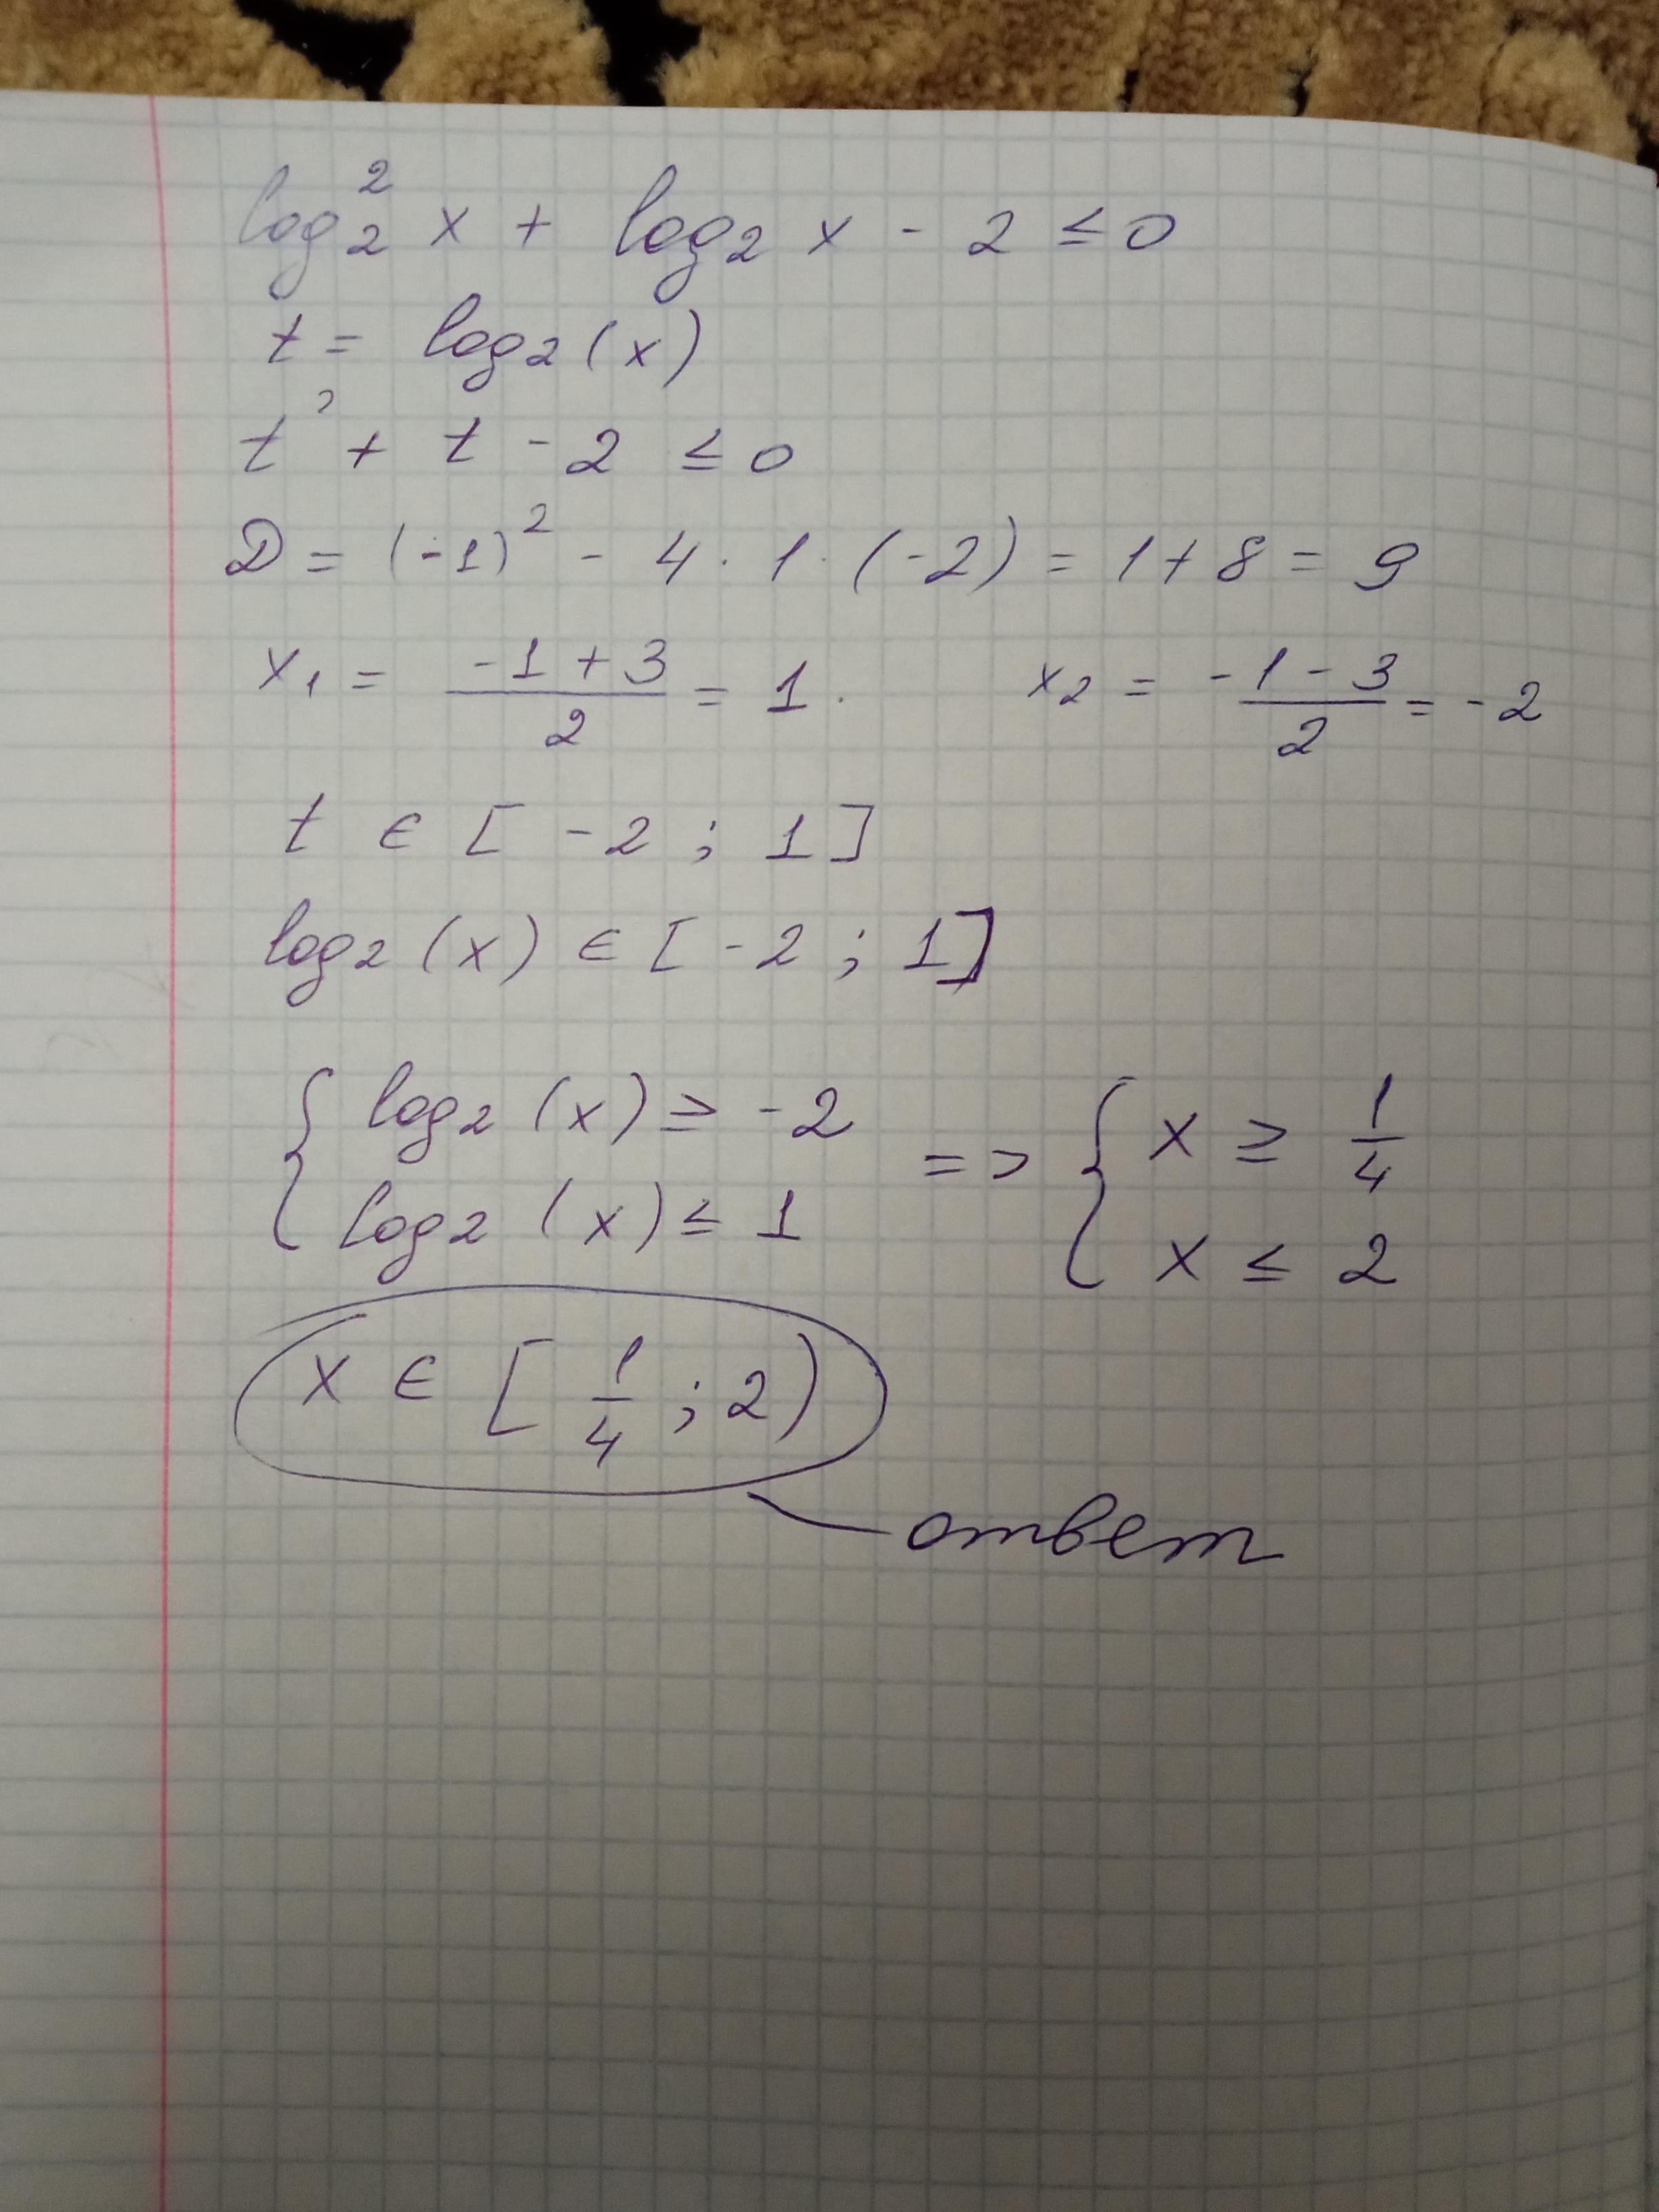 log₂² x + log₂ x - 2 ≤ 0
t = log₂(x)
t² + t - 2 ≤ 0
D = (-1)² - 4 · 1 · (-2) = 1 + 8 = 9
x₁ = (-1 + 3)/2 = 1. x₂ = (-1 - 3)/2 = -2
t ∈ [-2; 1]
log₂(x) ∈ [-2; 1]
{ log₂(x) ≥ -2 => { x ≥ 1/4
log₂(x) ≤ 1 x ≤ 2
x ∈ [1/4; 2)
ответ